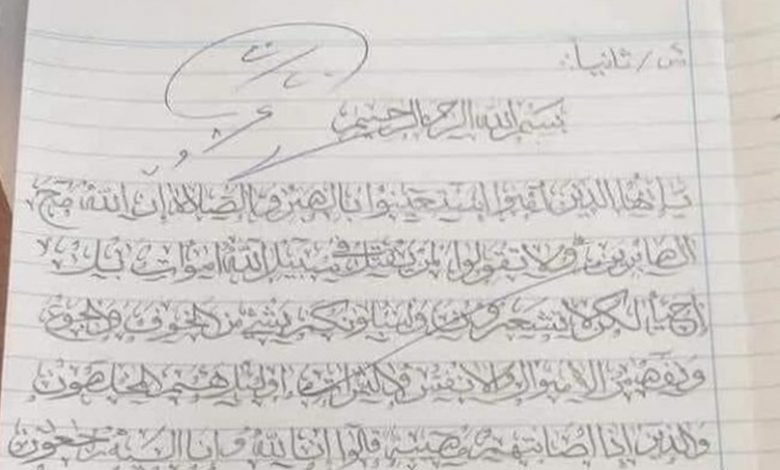 ش/ثانياً:
بسم الله الرحمن الرحيم
يا أيها الذين آمنوا استعينوا بالصبر والصلاة إن الله مع
الصابرين ولا تقولوا لمن يقتل في سبيل الله اموات بل
أحياء لكن لا تشعرون ولنبلونكم بشئ من الخوف والجوع
ونقص من الاموال والانفس والثمرات اولئك هم المخلصون
والذين إذا اصابتهم مصيبة قالوا انا لله وانا اليه راجعون